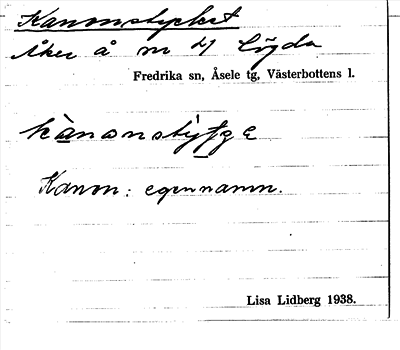 Kanonstycket
Åker å nr 4 Lögda
Fredrika sn, Åsele tg, Västerbottens l.
kànonstýƫge
Kanon: egennamn.
Lisa Lidberg 1938.